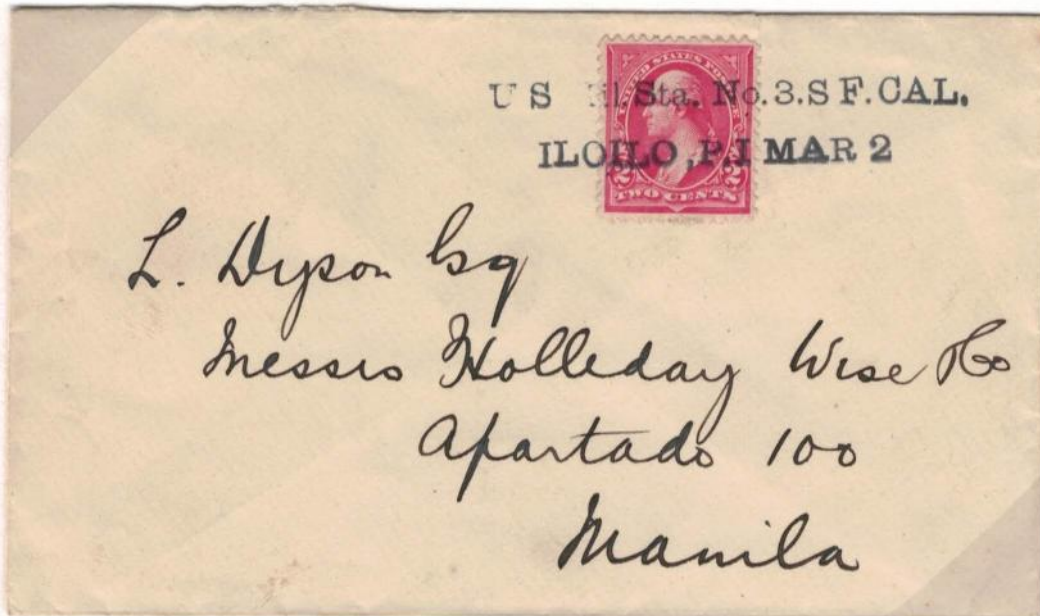 US Sta. No.3.S F.CAL.
ILOILO, P.I MAR 2
UNITED STATES POSTAGE
2 2
TWO CENTS
L. Dyson Esq
Messrs Holleday Wise & Co
Apartado 100
Manila